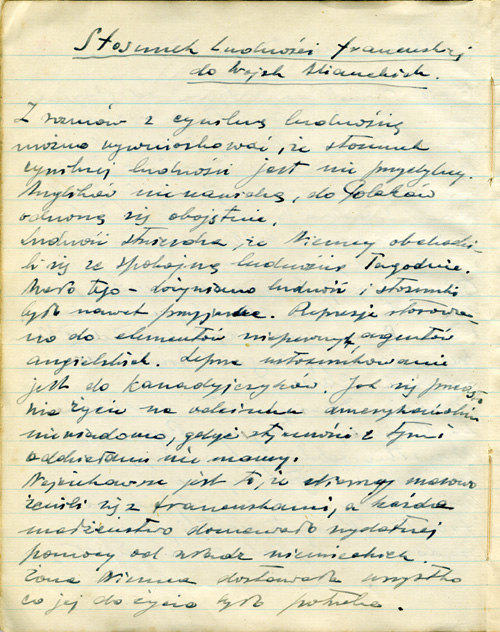 Stosunek ludności francuskiej
do Wojsk Alianckich.
Z rozmów z cywilną ludnością
można wywnioskować, że stosunek
cywilnej ludności jest nie przychylny.
Anglików nienawidzą, do Polaków
odnoszą się obojętnie.
Ludność stwierdza, że Niemcy obchodzi-
li się ze spokojną ludnością łagodnie.
Mało tego - dożywiano ludność i stosunki
były nawet przyjazne. Represje stosowa-
no do elementów niepewnych, agentów
angielskich. Lepsze ustosunkowanie
jest do Kanadyjczyków. Jak się
życie na odcinku amerykańskim
niewiadomo, gdyż styczności z tymi
oddziałami nie mamy.
Najciekawsze jest to, że Niemcy masowo
żenili się z francuskami, a każde
małżeństwo doznawało wydatnej
pomocy od władz niemieckich.
Żona Niemca dostawała wszystko
co jej do życia było potrzeba.